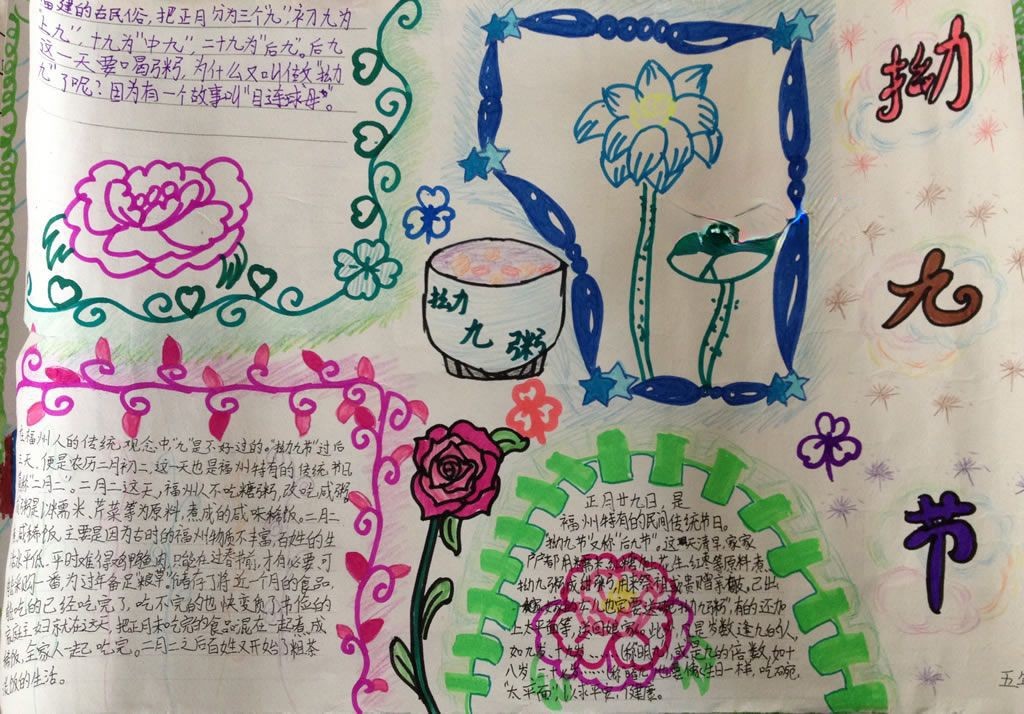 福建的古民俗，把正月分为三个"九"，初九为
上九"，十九为"中九"，二十九为"后九"。后九
这一天要口喝粥，为什么又叫做"拗
九"了呢？因为有一个故事叫"目连球母"。
拗
九
节
拗
九
粥
在福州人的传统，观念中"九"是不好过的。"拗九节"过后
三天，便是农历二月初二，这一天也是福州特有的传统节日
"二月二"。二月二这天，福州人不吃糖粥，改吃咸粥
粥是以糯米、芹菜等为原料，煮成的咸味稀饭。二月二
咸稀饭，主要是因为古时的福州物质不丰富，百姓的生
水平低，平时难得，只能在过春节前，才有必要、可
一番为过年备足粮草。储存了将近一个月的食品，
能吃的已经吃完了，吃不完的也快变质了，节俭的
家庭主妇就在这天，把正月未吃完的食品混在一起煮成
稀饭，全家人一起吃完。二月二之后百姓又开始了粗茶
淡饭的生活。
正月廿九日，是
福州特有的民间传统节日。
拗九节又称"后九节"。这天清早，家家
户户都用糯米，红糖，花生，红枣等原料煮
拗九粥，用来祭
"拗九粥"，有的还加
上太平面等，送回娘家。是岁数逢九的人，
如九岁、十九岁……，或是九的倍数，如十
八岁、二十七岁……也要像过生日一样，吃碗
"太平面"，以求平安、健康。
五年